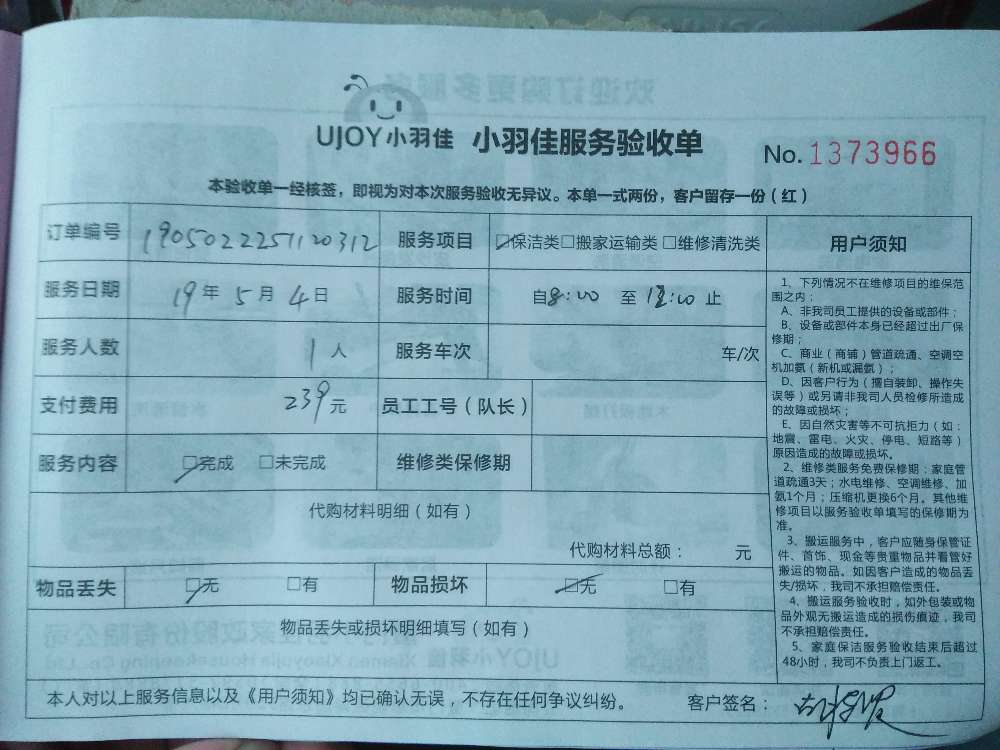 UJOY小羽佳 小羽佳服务验收单
No. 1373966
本验收单一经核签，即视为对本次服务验收无异议。本单一式两份，客户留存一份（红）
订单编号 1905022251120312 服务项目 ☑保洁类□搬家运输类□维修清洗类
服务日期 19年5月4日 服务时间 自8:00 至 12:00 止
服务人数 1人 服务车次 车/次
支付费用 239元 员工工号（队长）
服务内容 ☑完成 □未完成 维修类保修期
代购材料明细（如有）
代购材料总额： 元
物品丢失 ☑无 □有 物品损坏 ☑无 □有
物品丢失或损坏明细填写（如有）
用户须知
1、下列情况不在维修项目的维保范
围之内：
A、非我司员工提供的设备或部件；
B、设备或部件本身已经超过出厂保
修期；
C、商业（商铺）管道疏通、空调空
机加氨（新机或漏氨）；
D、因客户行为（擅自装卸、操作失
误等）或另请非我司人员检修所造成
的故障或损坏；
E、因自然灾害等不可抗拒力（如：
地震、雷电、火灾、停电、短路等）
原因造成的故障或损坏。
2、维修类服务免费保修期：家庭管
道疏通3天；水电维修、空调维修、加
氨1个月；压缩机更换6个月。其他维
修项目以服务验收单填写的保修期为
准。
3、搬运服务中，客户应随身保管证
件、首饰、现金等贵重物品并看管好
搬运的物品。如因客户造成的物品丢
失/损坏，我司不承担赔偿责任。
4、搬运服务验收时，如外包装或物
品外观无搬运造成的损伤痕迹，我司
不承担赔偿责任。
5、家庭保洁服务验收结束后超过
48小时，我司不负责上门返工。
本人对以上服务信息以及《用户须知》均已确认无误，不存在任何争议纠纷。 客户签名：